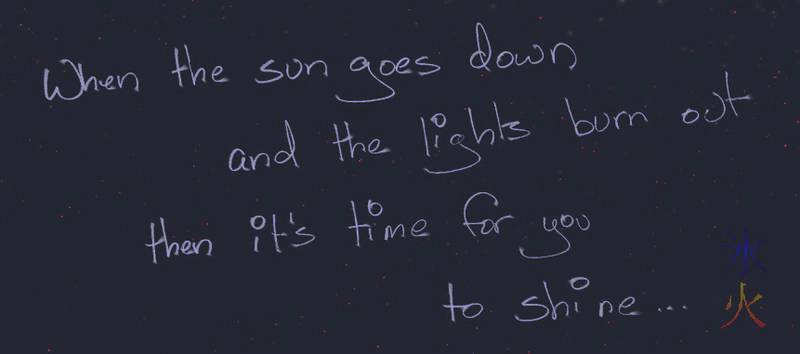 When the sun goes down
and the lights burn out
then it's time for you
to shine...
水
火